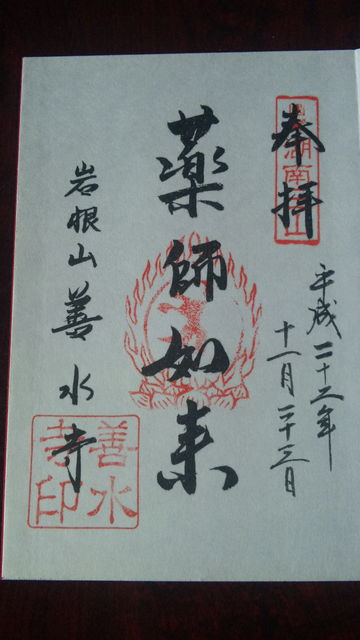 奉拝
平成二十二年
十一月二十三日
薬師如来
岩根山善水寺
善水
寺印